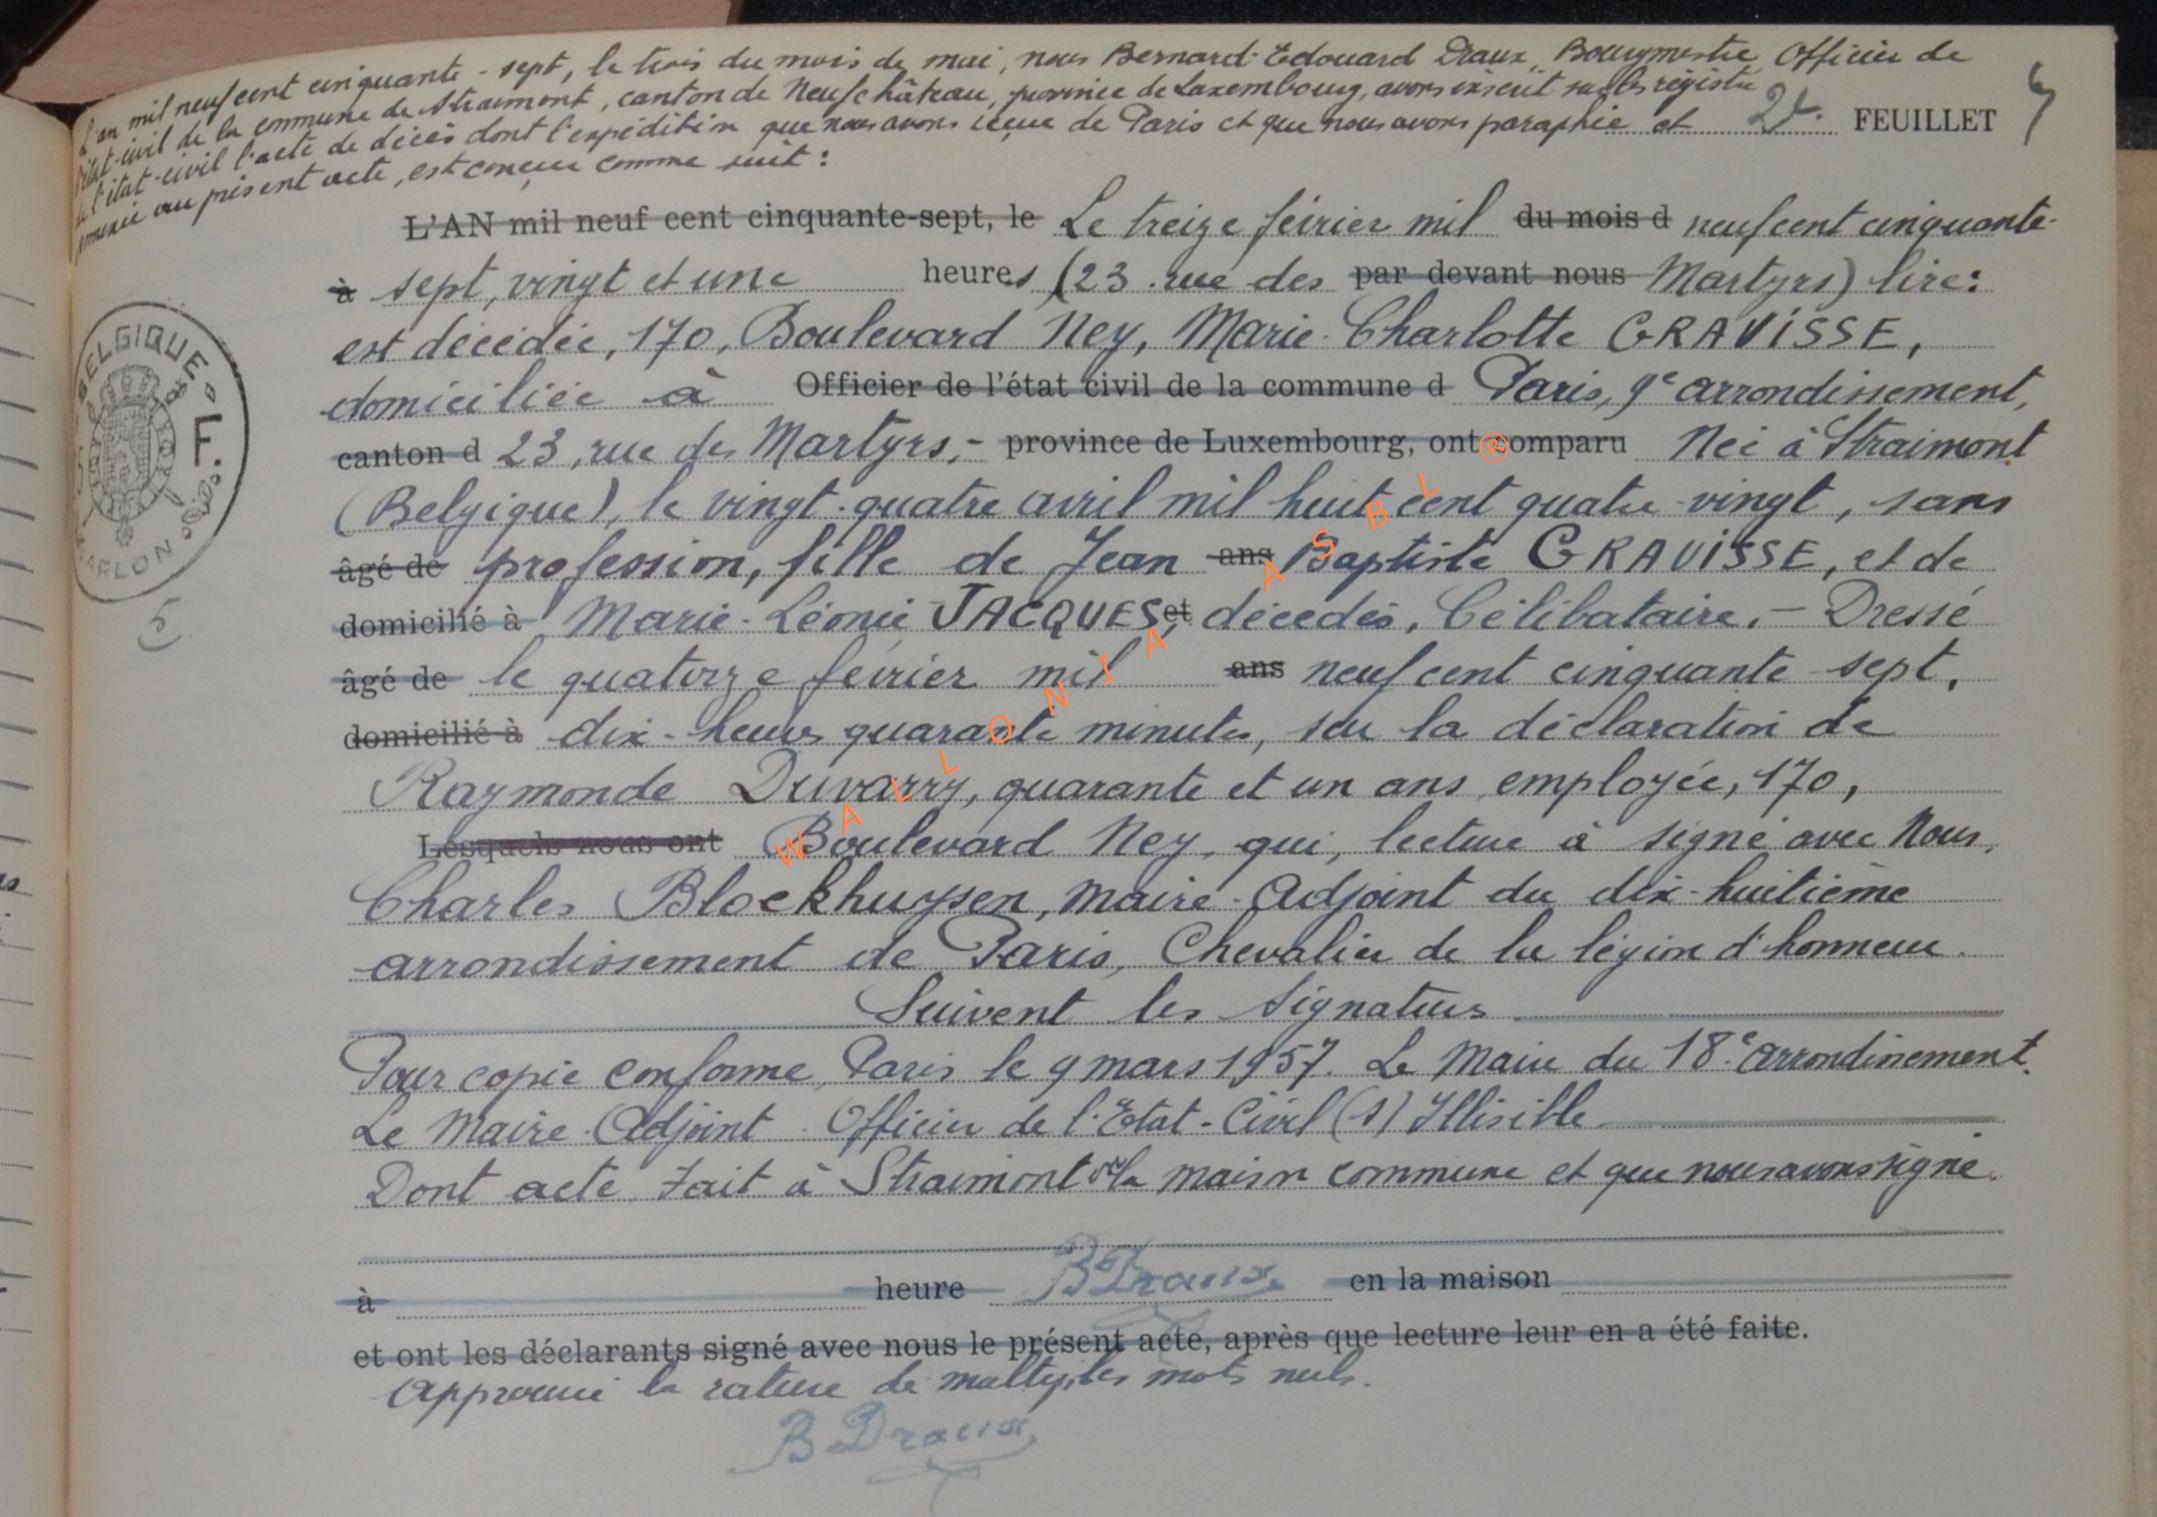 L'an mil neuf cent cinquante-sept, le trois du mois de mai, nous Bernard-Edouard Draux, Bourgmestre, Officier de
l'état-civil de la commune de Straimont, canton de Neufchâteau, province de Luxembourg, avons inscrit sur les registres
de l'état-civil l'acte de décès dont l'expédition que nous avons reçue de Paris et que nous avons paraphée et 2e FEUILLET
annexée au présent acte, est conçue comme suit :
L'AN mil neuf cent cinquante-sept, le Le treize février mil du mois d neuf cent cinquante-
à sept, vingt et une heures (23 rue des par devant nous Martyrs) lire:
est décédée, 170, Boulevard Ney, Marie-Charlotte GRAVISSE,
domiciliée à Officier de l'état civil de la commune d Paris, 9e arrondissement,
canton d 23, rue des Martyrs,- province de Luxembourg, ont comparu Née à Straimont
(Belgique), le vingt-quatre avril mil huit cent quatre-vingt, sans
âgé de profession, fille de Jean ans Baptiste GRAVISSE, et de
domicilié à Marie-Léonie JACQUES, et décédés, Célibataire. - Dressé
âgé de le quatorze février mil ans neuf cent cinquante-sept,
domicilié à dix-heures quarante minutes, sur la déclaration de
Raymonde Duvarry, quarante et un ans, employée, 170,
Lesquels nous ont Boulevard Ney, qui, lecture à signé avec Nous,
Charles Blockhuysen, Maire-Adjoint du dix-huitième
arrondissement de Paris, Chevalier de la légion d'honneur.
Suivent les signatures
Pour copie conforme, Paris le 9 mars 1957. Le Maire du 18e arrondissement.
Le Maire-Adjoint Officier de l'Etat-Civil (s) Illisible
Dont acte fait à Straimont en la maison commune et que nous avons signé.
à heure B Draux en la maison
et ont les déclarants signé avec nous le présent acte, après que lecture leur en a été faite.
Approuvé la rature de multiples mots nuls.
B Draux
BELGIQUE
F.
ARLON
5
WALLONIA ASBL ®